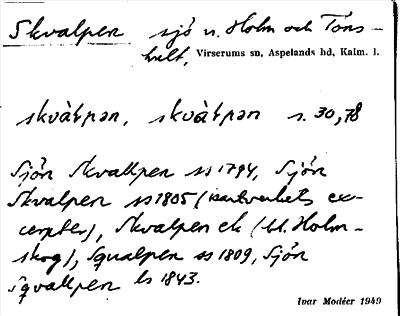 Skvalpen sjö n. Holm och Töns-
hult, Virserums sn, Aspelands hd, Kalm. l.
skvàɫpən, skvàɫpən s. 30, 78
Sjön Skvallpen ss 1794, Sjön
Skvalpen ss 1805 (kartverkets ex-
cerpter), Skvalpen ek (bl. Holm-
skog), Squalpen ss 1809, Sjön
Sqvallpen ls 1843.
Ivar Modéer 1949